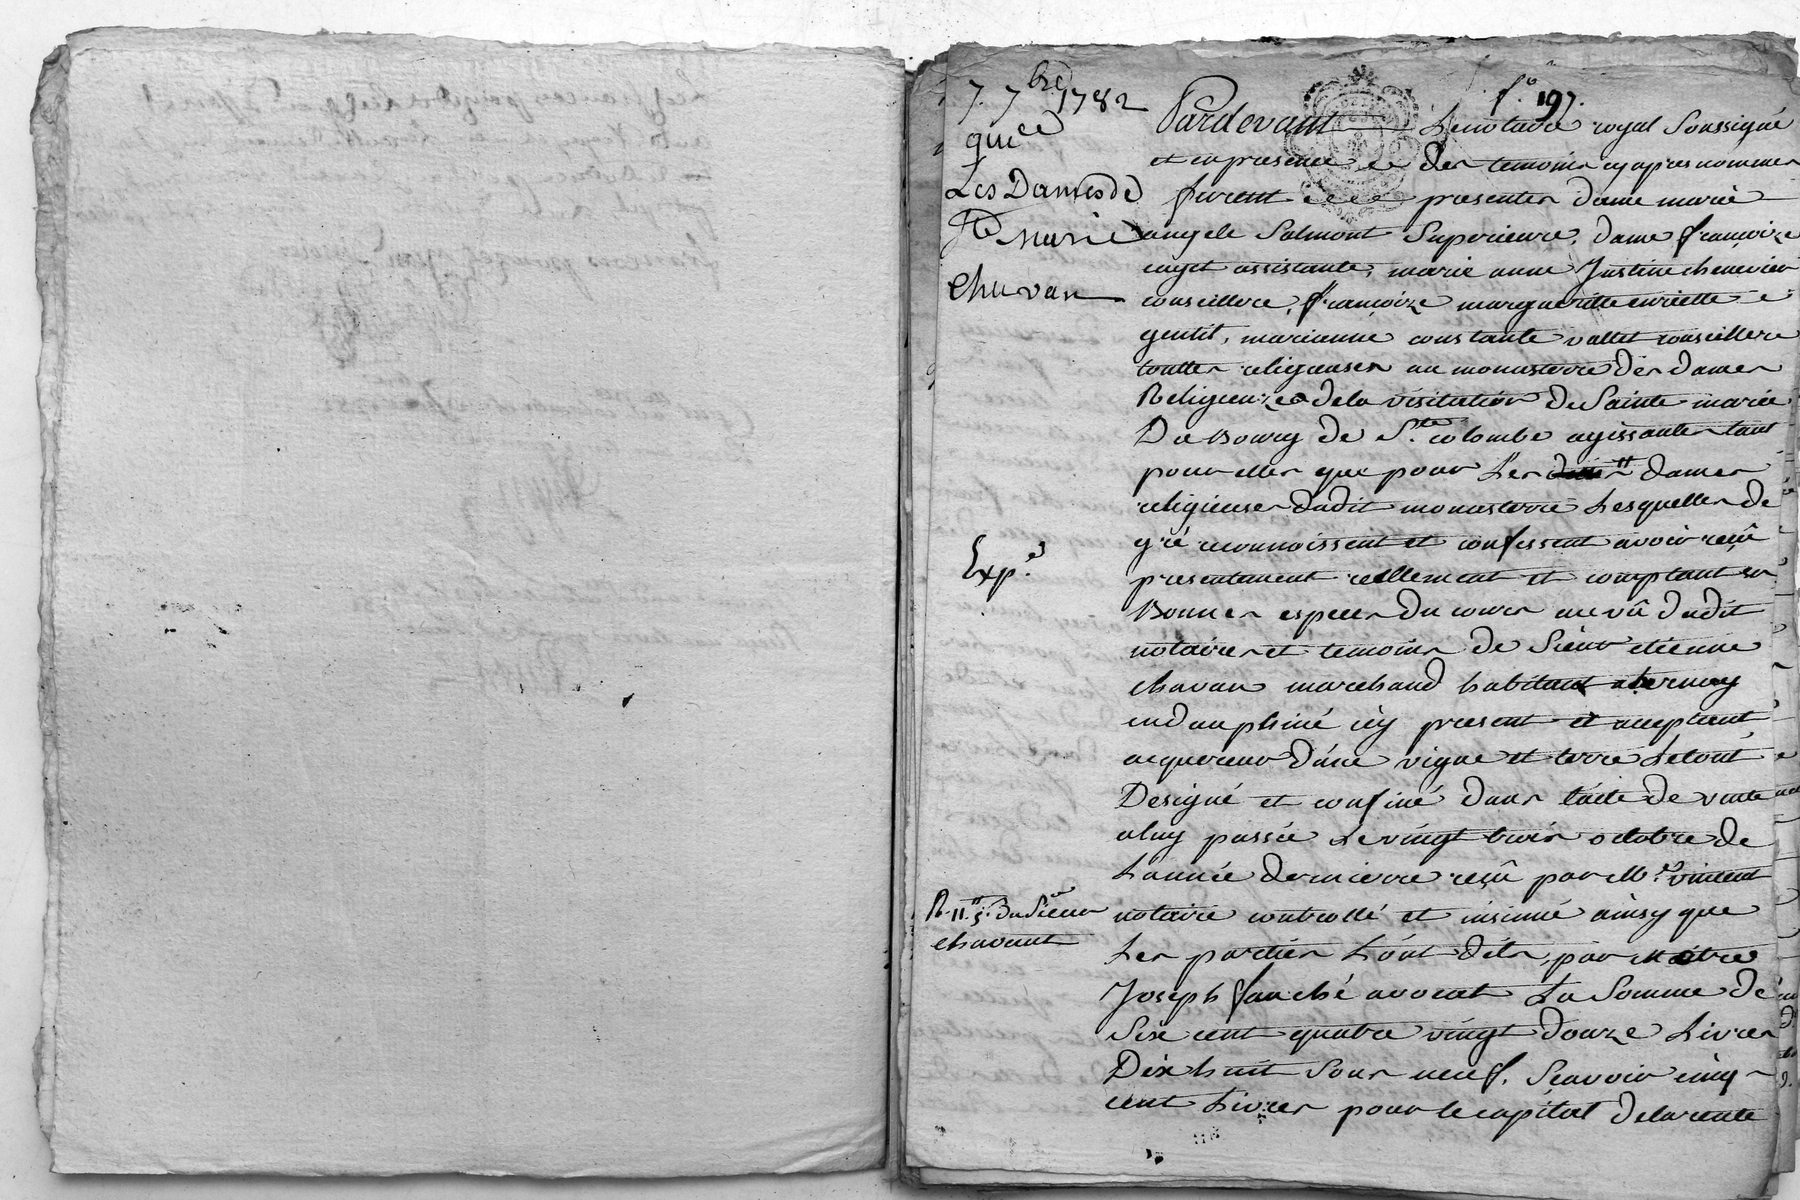 7. 7bre 1782
quce
Les Dames de
Ste Marie
Chavan
Exp.é
R. 11.s 3.d Du Sieur
chavant
f.o 197.
Pardevant Le notaire royal Soussigné
et en presence des temoins cy apres nommes
furent presentes dame marie
angele Salmont Superieure, dame françoize
assistante, marie anne Justine chenevier
conseillere, françoize margueritte enriette
gentil, marianne constante vallet conseillere
touttes religieuses au monastere des dames
Religieuzes de la visitation De Sainte marie
Du Bourg de Ste colombe agissantes tant
pour elles que pour Les dames
religieuses dudit monastere Lesquelles de
gré reconnoissent et confessent avoir reçu
presentement reellement et comptant en
Bonnes especes du cours au vû dudit
notaire et temoins de Sieur etienne
chavan marchand habitant a bernay
en dauphiné icy present et acceptant
acquereur d'une vigne et terre Le tout
Designé et confiné dans l'acte de vente
a luy passée Le vingt trois octobre de
L'année derniere reçû par Me vincent
notaire controllé et insinué ainsy que
Les parties L'ont dit, par Maitre
Joseph fauché avocat La Somme de
Six cent quatre vingt douze Livres
Dix huit Sous neuf, Scavoir cinq
cent Livres pour le capital de la rente